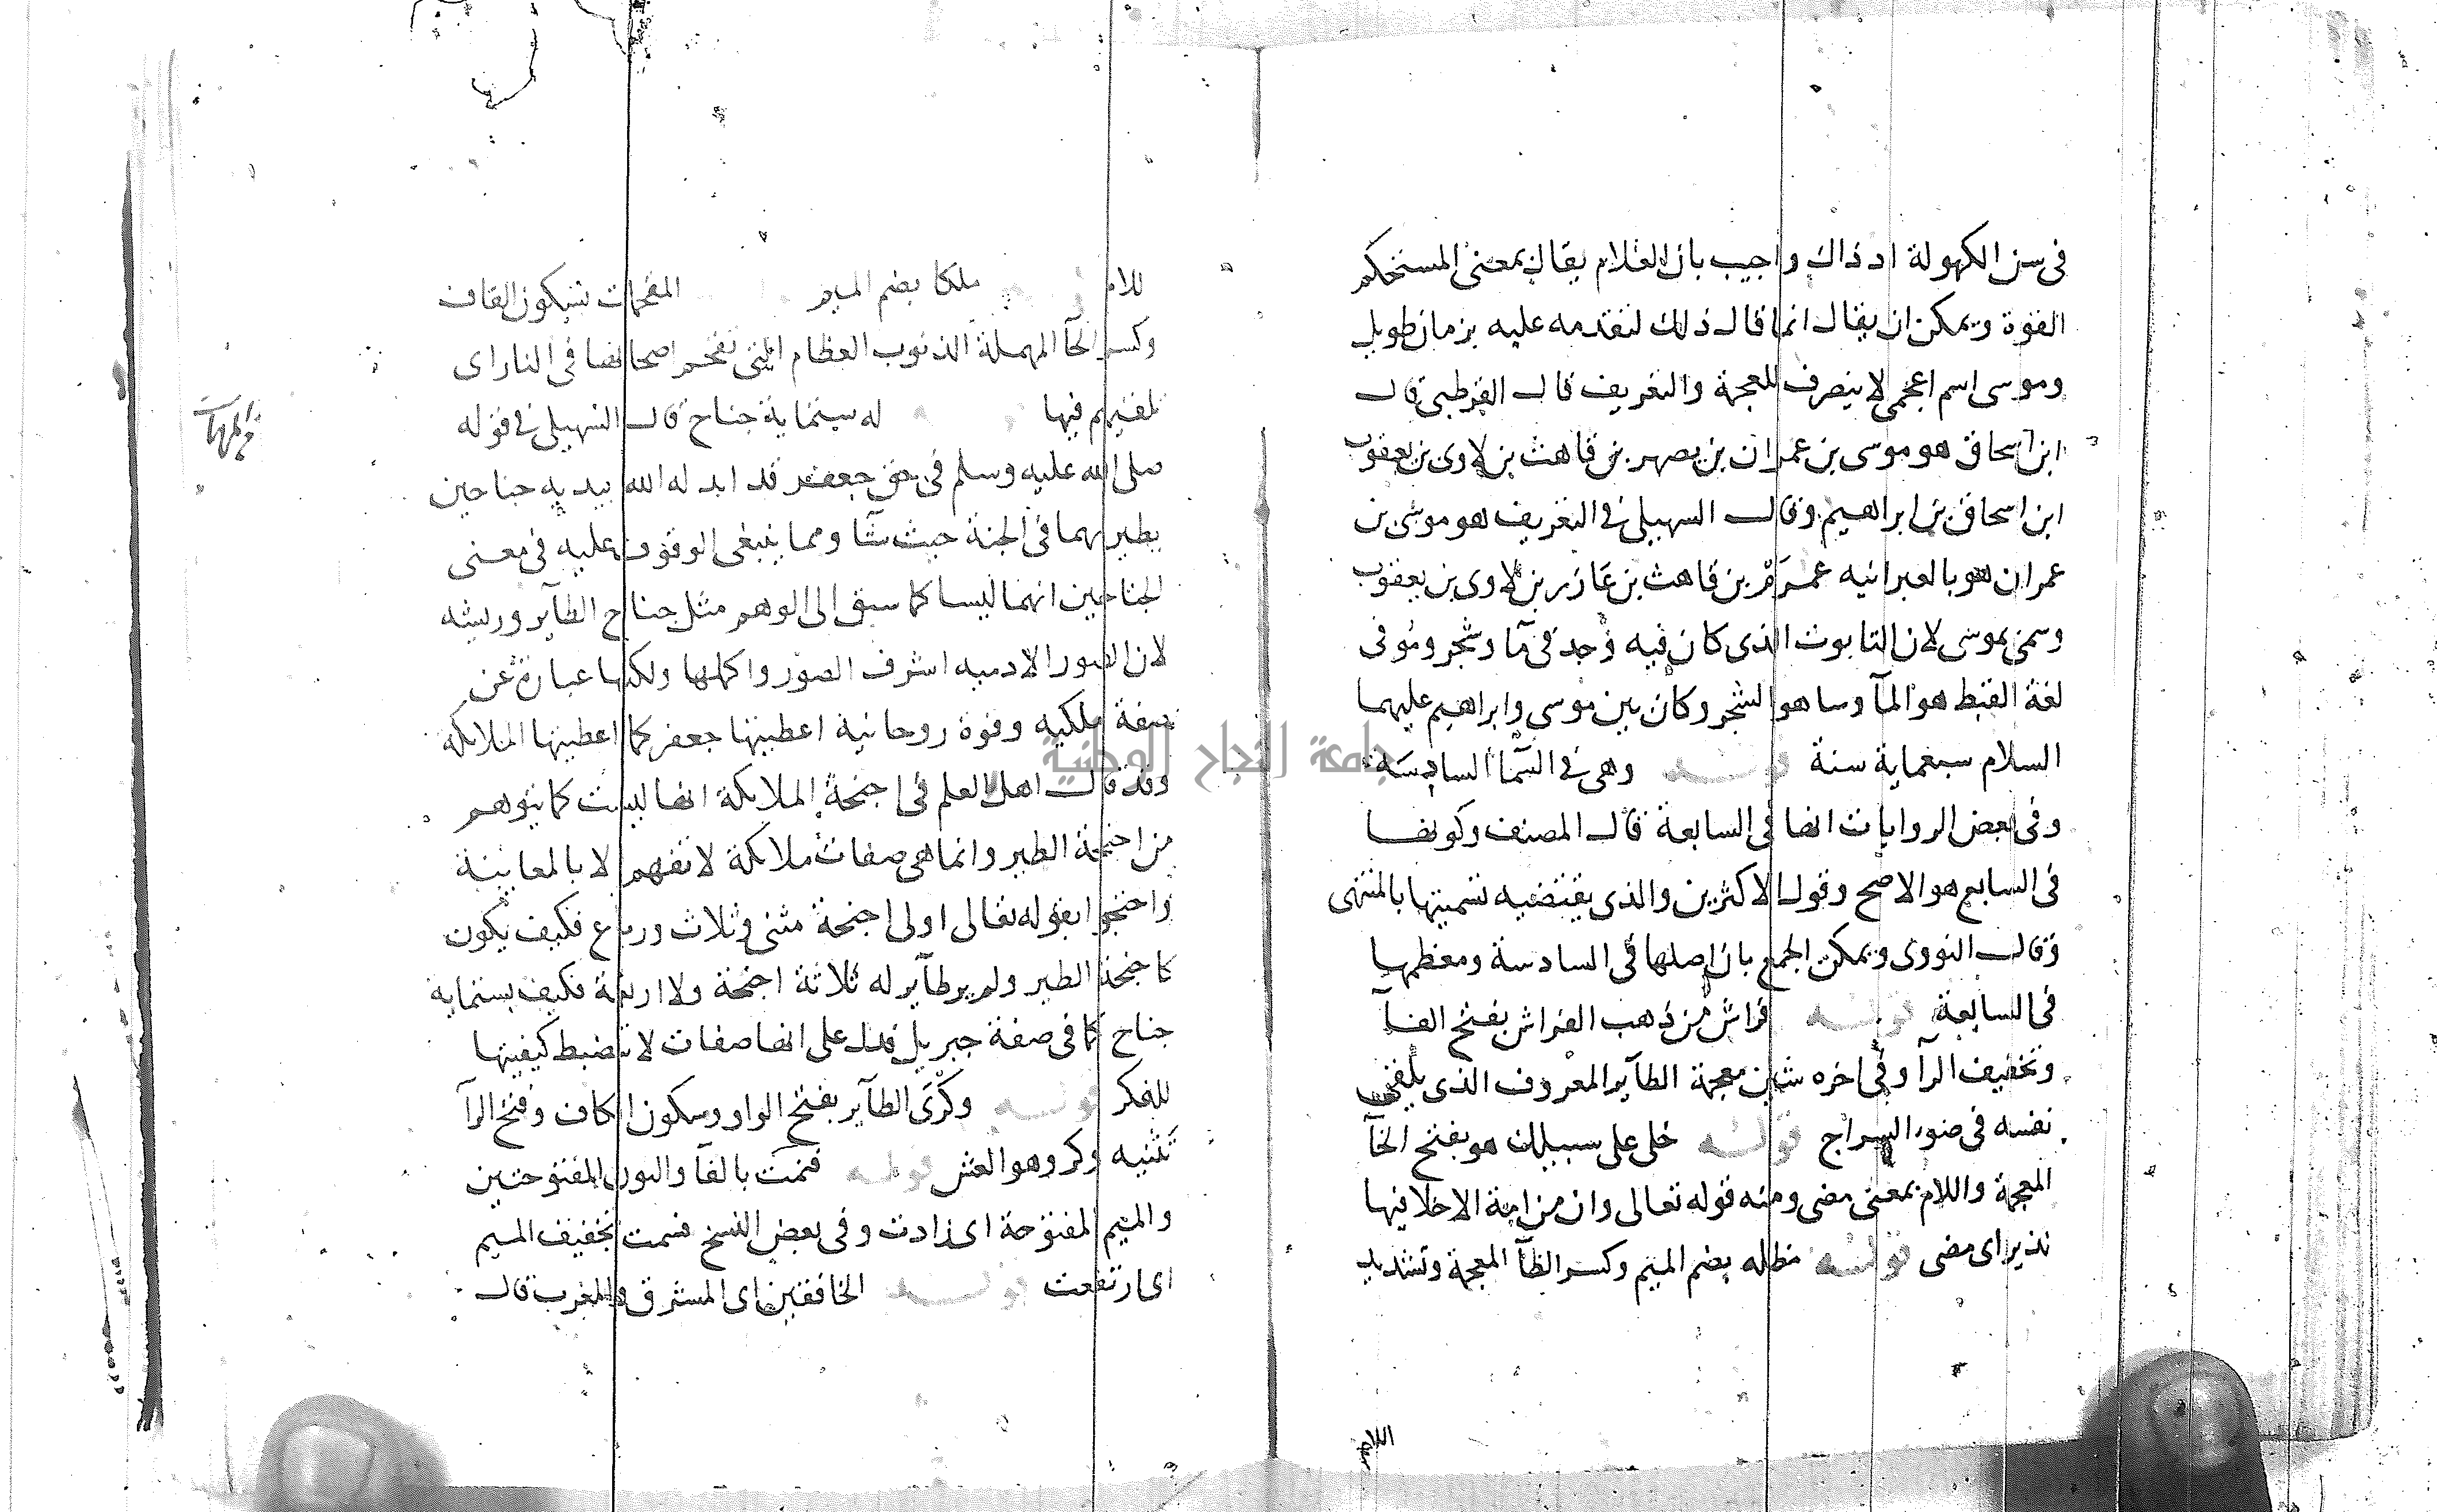 في سن الكهولة اد ذاك واجيب بان الغلام يقال بمعنى المستحكم
القوة ويمكن ان يقال انما قال ذلك لتقدمه عليه بزمان طويل
وموسى اسم اعجمي لا ينصرف للعجمة والتعريف قال القرطبي قال
ابن اسحاق هو موسى بن عمران بن يصهر بن قاهث بن لاوى بن يعقوب
ابن اسحاق بن ابراهيم وقال السهيلي في التعريف هو موسى بن
عمران هو بالعبرانيه عمرَمْ بن قاهث بن عازر بن لاوى بن يعقوب
وسمي بموسى لان التابوت الذى كان فيه وُجد في مآ وشجر ومُو في
لغة القبط هو المآ وسا هو الشجر وكان بين موسى وابراهيم عليهما
السلام سبعماية سنة قوله وهي في السمآ السادسة
وفي بعض الروايات انها في السابعة قال المصنف وكونها
في السابع هو الاصح وقول الاكثرين والذى يقتضيه تسميتها بالمنتهى
وقال النووى ويمكن الجمع بان اصلها في السادسة ومعظمها
في السابعة قوله فراش من ذهب الفراش بفتح الفآ
وتخفيف الرآ وفي اخره شين معجمة الطآير المعروف الذى يلقي
نفسه في ضوء السراج قوله خلى على سبيلك هو بفتح الخآ
المعجمة واللام بمعنى مضى ومنه قوله تعالى وان من امة الا خلا فيها
نذير اى مضى قوله مظله بضم الميم وكسر الظآ المعجمة وتشديد
اللام
للام ملكا بضم الميم المقحمات بسكون القاف
وكسر الحآ المهملة الذنوب العظام التي تقحم اصحابها في النار اى
تلقيهم فيها له ستماية جناح قال السهيلي في قوله
صلى الله عليه وسلم في حق جعفر قد ابدله الله بيديه جناحين
يطير بهما في الجنة حيث شآ ومما ينبغي الوقوف عليه في معنى
الجناحين انهما ليسا كما سبق الى الوهم مثل جناح الطآير وريشه
لان الصور الادميه اشرف الصور واكملها ولكنها عبارة عن
صفة ملكيه وقوة روحانية اعطيها جعفر كما اعطيتها الملايكة
وقد قال اهل العلم في اجنحة الملايكة انها ليست كما يتوهم
من اجنحة الطير وانما هي صفات ملايكة لا تفهم الا بالمعاينة
واحتجوا بقوله تعالى اولى اجنحة مثنى وثلاث ورباع فكيف يكون
كاجنحة الطير ولم ير طآير له ثلاثة اجنحة ولا اربعة فكيف بستماية
جناح كما في صفة جبريل فدل على انها صفات لا تنضبط كيفيتها
للفكر قوله وكرَى الطآير بفتح الواو وسكون الكاف وفتح الرآ
تثنيه وكر وهو العش قوله فنمت بالفآ والنون المفتوحتين
والميم المفتوحة اى زادت وفي بعض النسخ فسمت بتخفيف الميم
اى ارتفعت قوله الخافقين اى المشرق والمغرب قال
جامعة النجاح الوطنية